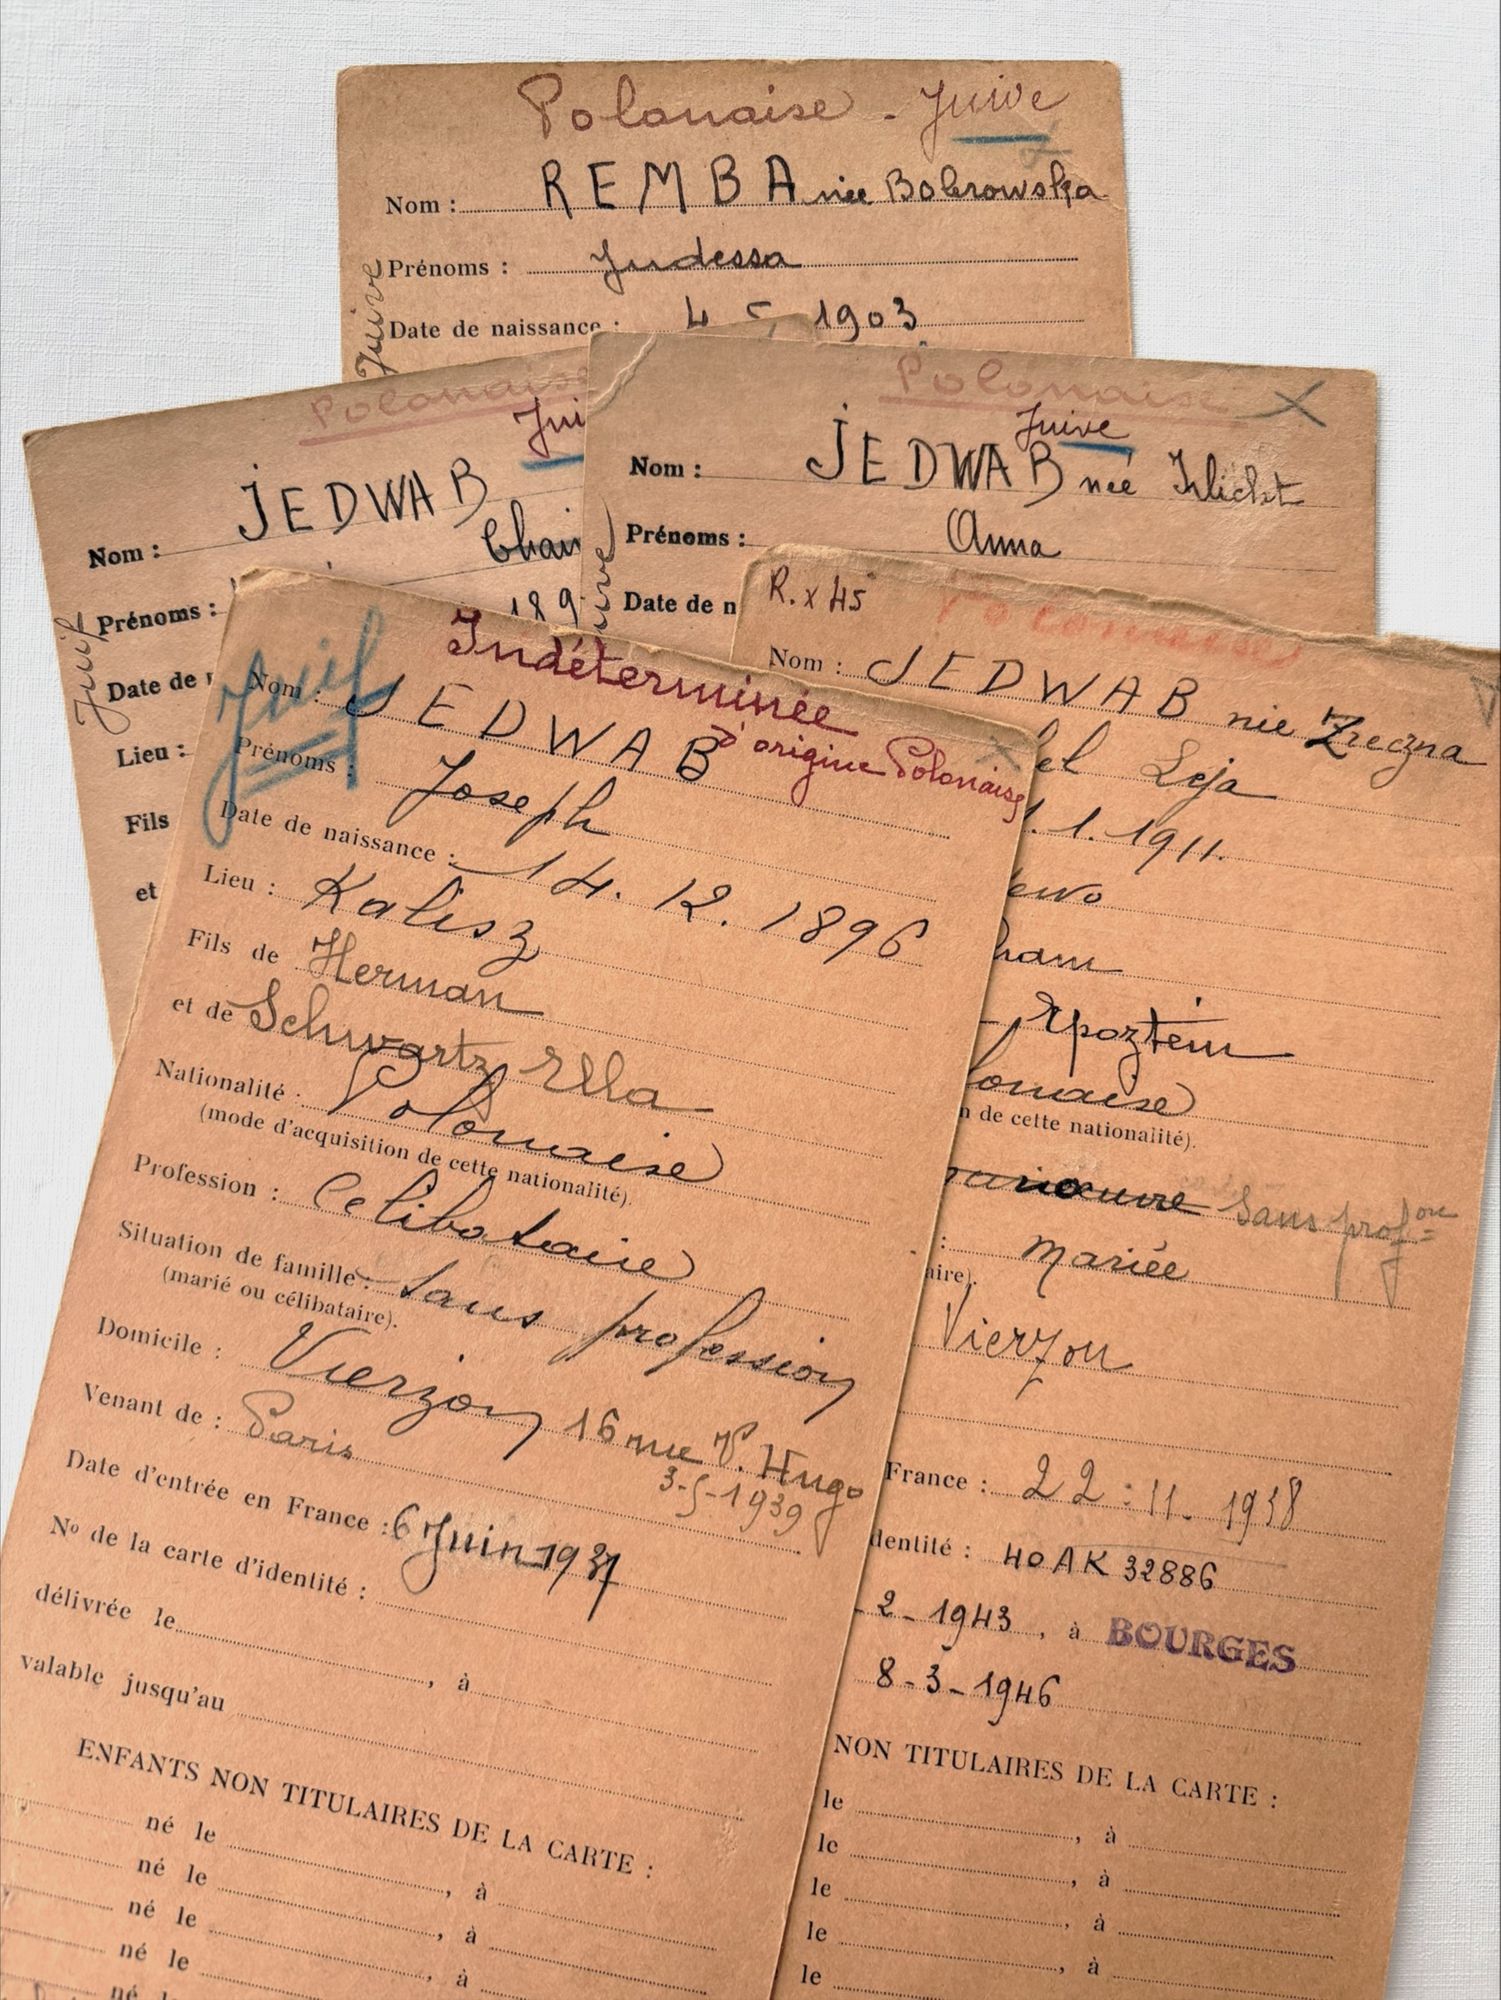 Polonaise - Juive
Nom : REMBA née Bobrowska
Prénoms : Judessa
Juive
Date de naissance : 4 5 1903
Polonaise
Jui
Nom : JEDWAB
Prénoms : Chai
Juif
Date de 189
Lieu :
Fils
et
Polonaise X
Juive
Nom : JEDWAB née Klicht
Prénoms : Anna
Date de n
R. x 45 Polonaise
Nom : JEDWAB née Zreczna
el Leja
1. 1. 1911.
ewo
ham
Epoztein
lonaise
n de cette nationalité).
manœuvre Sans prof on
: mariée
aire).
Vierzon
France : 22 : 11 - 1938
dentité : 40 AK 32886
- 2 - 1943, à BOURGES
8 - 3 - 1946
NON TITULAIRES DE LA CARTE :
le , à
le , à
le , à
le , à
le
Indéterminée
d'origine Polonaise
Juif
Nom : JEDWAB
Prénoms : Joseph
Date de naissance : 14. 12. 1896
Lieu : Kalisz
Fils de Herman
et de Schwartz Ella
Nationalité : Polonaise
(mode d'acquisition de cette nationalité).
Profession : Celibataire
Situation de famille : Sans profession
(marié ou célibataire).
Domicile : Vierzon 16 rue V. Hugo
Venant de : Paris 3-5-1939
Date d'entrée en France : 6 Juin 1937
No de la carte d'identité :
délivrée le , à
valable jusqu'au
ENFANTS NON TITULAIRES DE LA CARTE :
né le , à
né le , à
né le , à
né le
né le